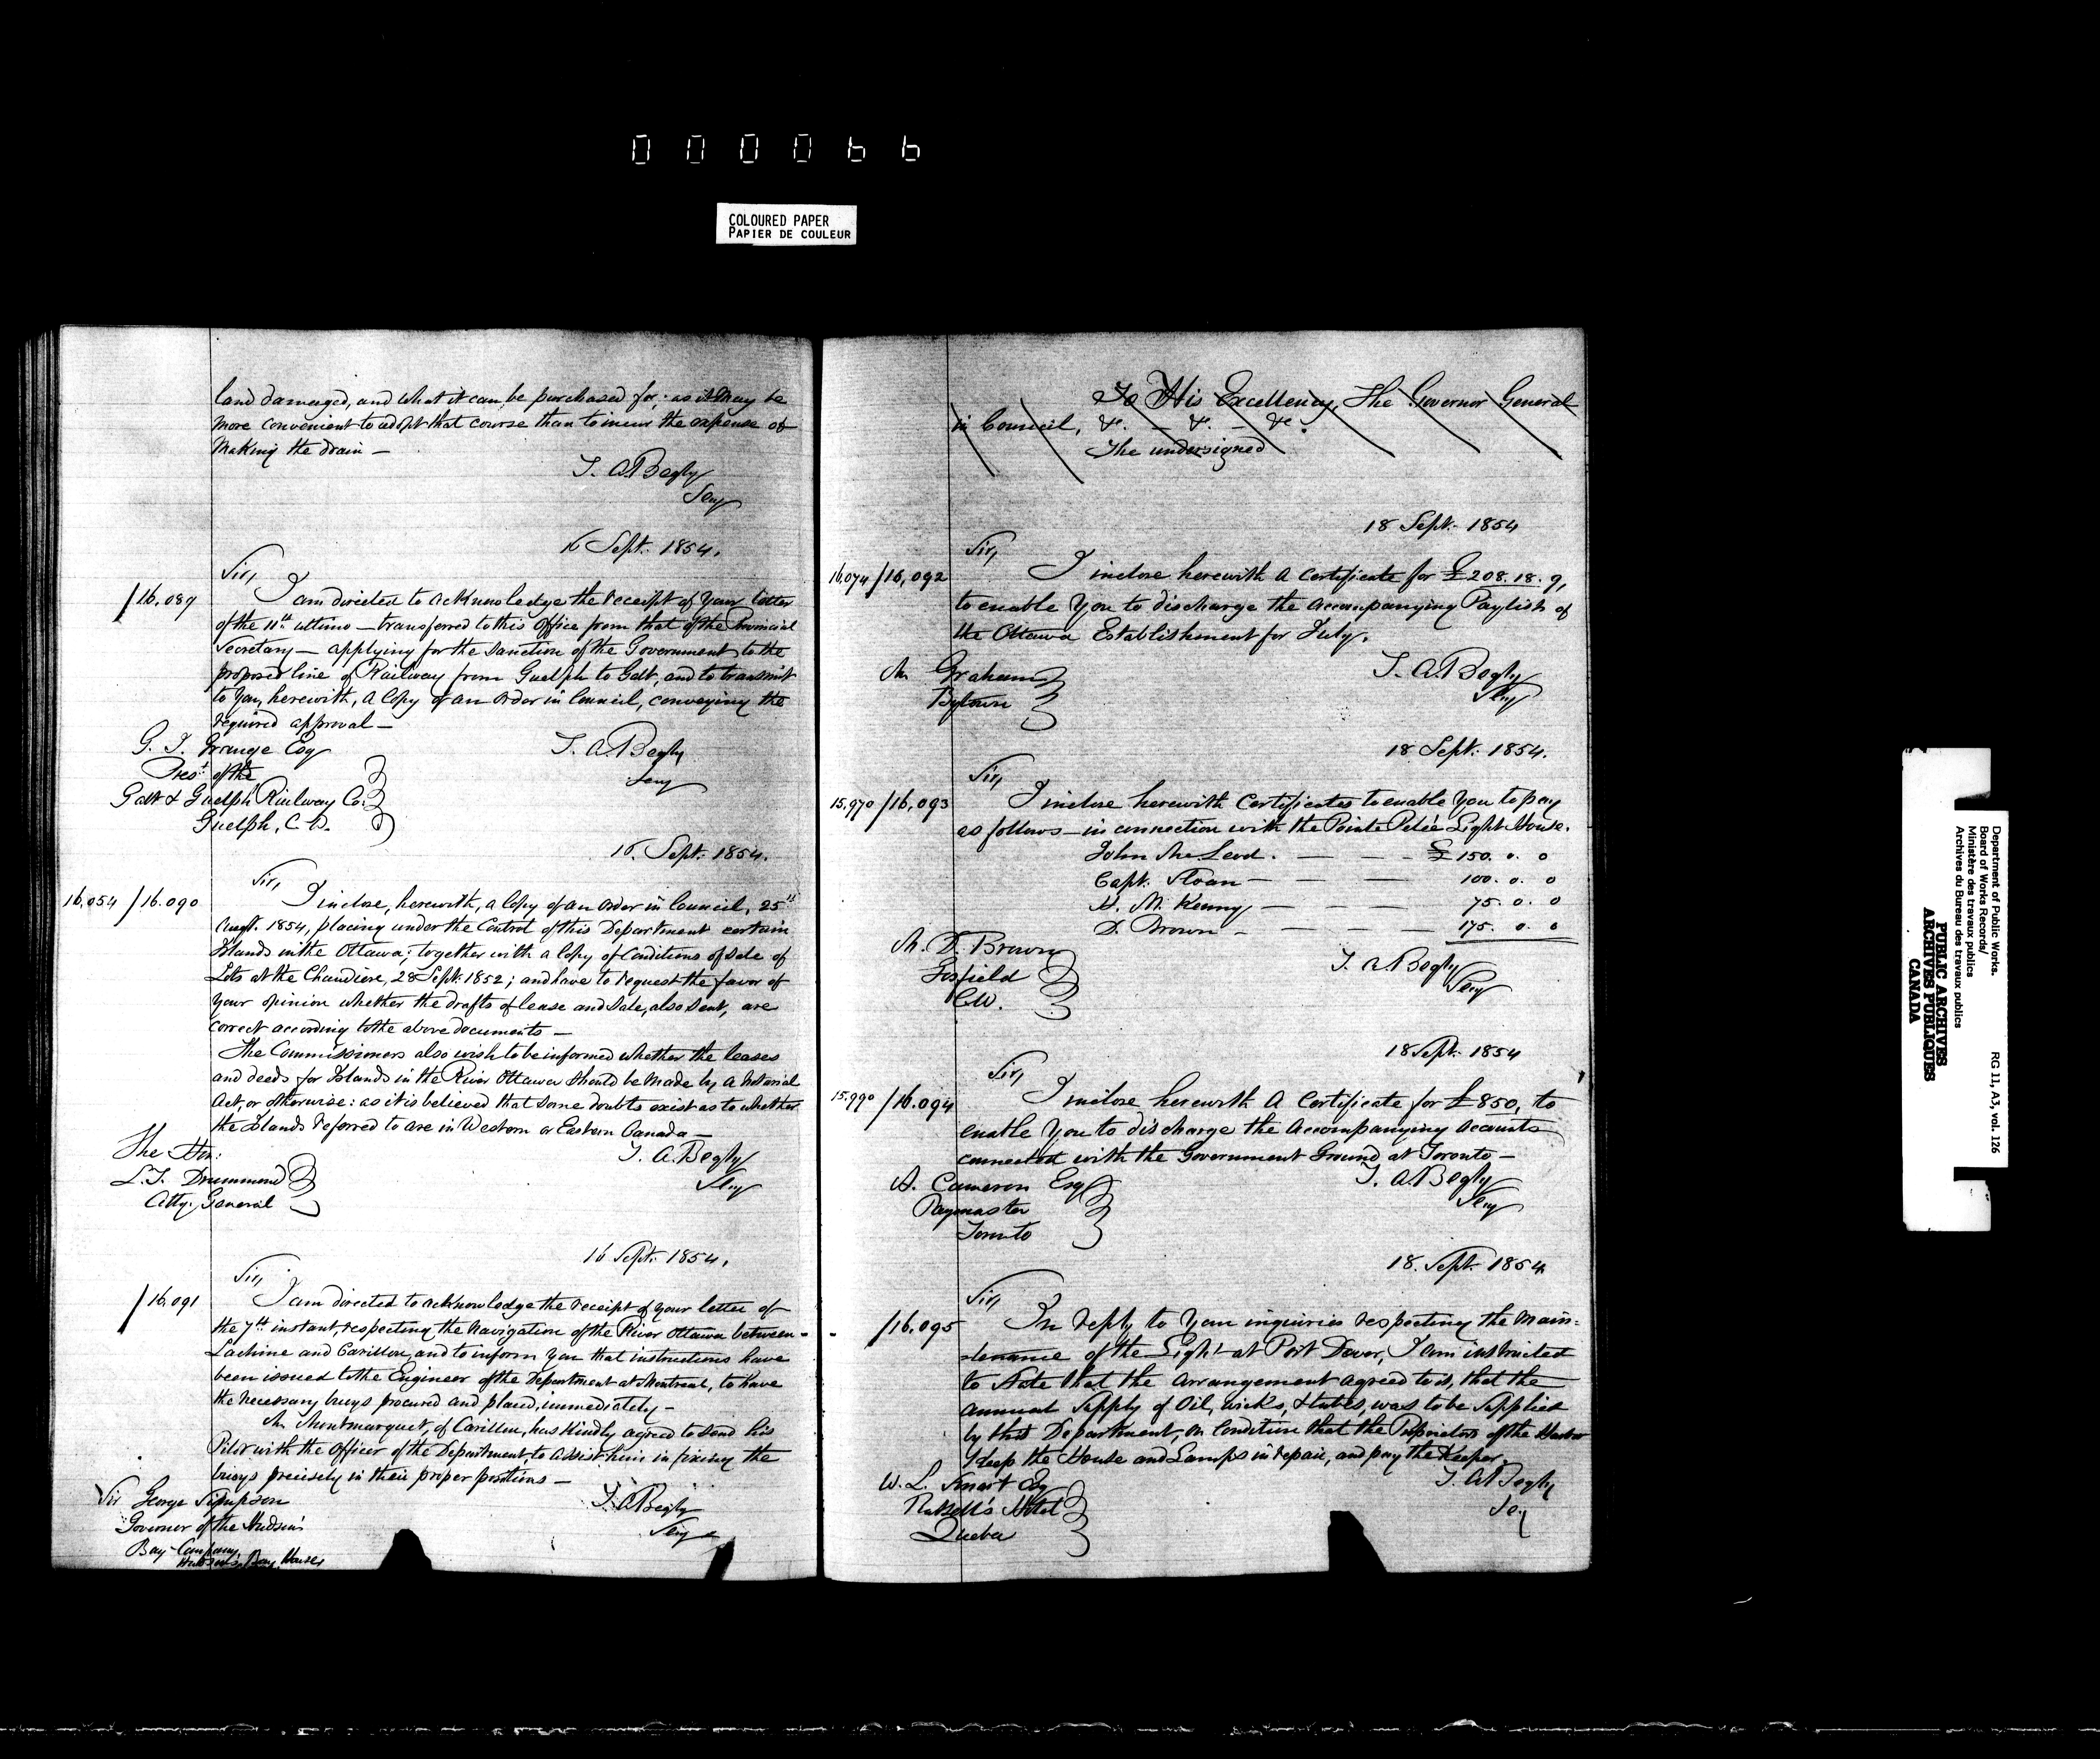 000066
COLOURED PAPER
PAPIER DE COULEUR
land damaged, and what it can be purchased for; as it may be
more convenient to adopt that course than to incur the expense of
making the drain —
T. A. Begly
Secy
16 Sept. 1854.
Sir,
/16.089 I am directed to acknowledge the receipt of your letter
of the 11th ultimo — transferred to this Office from that of the Provincial
Secretary — applying for the sanction of the Government to the
proposed line of Railway from Guelph to Galt, and to transmit
to you, herewith, a Copy of an Order in Council, conveying the
required approval —
G. J. Grange Esq
Prest. of the
Galt & Guelph Railway Co.
Guelph, C. W.
T. A. Begly
Secy
16. Sept. 1854.
Sir,
16,054/16.090 I inclose, herewith, a Copy of an Order in Council, 25th
Augt. 1854, placing under the Control of this Department certain
Islands in the Ottawa; together with a Copy of Conditions of Sale of
Lots at the Chaudiere, 28 Sept. 1852; and have to request the favor of
your opinion whether the drafts of lease and Sale, also sent, are
correct according to the above documents —
The Commissioners also wish to be informed whether the leases
and deeds for Islands in the River Ottawa should be made by a Notarial
Act, or otherwise: as it is believed that some doubts exist as to whether
the Islands referred to are in Western or Eastern Canada —
The Hon:
L. T. Drummond
Atty. General
T. A. Begly
Secy
16 Sept. 1854.
Sir,
/16.091 I am directed to acknowledge the receipt of your letter of
the 7th instant, respecting the Navigation of the River Ottawa between
Lachine and Carillon, and to inform you that instructions have
been issued to the Engineer of the Department at Montreal, to have
the necessary buoys procured and placed, immediately —
Mr Montmarquet, of Carillon, has kindly agreed to send his
Pilot with the Officer of the Department, to assist him in fixing the
buoys precisely in their proper positions —
Sir George Simpson
Governor of the Hudson's
Bay Company
Hudson's Bay House,
T. A. Begly
Secy
To His Excellency, The Governor General
in Council, &c. — &c. — &c.
The undersigned
18 Sept. 1854
Sir,
16,074/16,092 I inclose herewith a Certificate for £208.18.9,
to enable you to discharge the accompanying Paylist of
the Ottawa Establishment for July.
Mr Graham
Bytown
T. A. Begly
Secy
18 Sept. 1854.
Sir,
15,970/16,093 I inclose herewith Certificates to enable you to pay
as follows — in connection with the Pointe Pelée Light House.
John McLeod. — — — £150. 0. 0
Capt. Sloan — — — 100. 0. 0
H. M. Kenny — — — 75. 0. 0
D. Brown — — — — 175. 0. 0
Mr. D. Brown
Gosfield
C.W.
T. A. Begly
Secy
18 Sept. 1854
Sir,
15,990/16.094 I inclose herewith a Certificate for £850, to
enable you to discharge the accompanying accounts
connected with the Government Ground at Toronto —
A. Cameron Esq
Paymaster
Toronto
T. A. Begly
Secy
18. Sept. 1854.
Sir,
/16.095 In reply to your inquiries respecting the main=
=tenance of the Light at Port Dover, I am instructed
to state that the arrangement agreed to is, that the
annual supply of Oil, wicks, & tubes, was to be supplied
by this Department, on condition that the Proprietors of the Harbor
keep the House and Lamps in repair, and pay the Keeper.
W. L. Smart Esq
Russell's Hotel
Quebec
T. A. Begly
Secy
Department of Public Works.
Board of Works Records/
Ministère des travaux publics
Archives du Bureau des travaux publics
RG 11, A3, vol. 126
PUBLIC ARCHIVES
ARCHIVES PUBLIQUES
CANADA